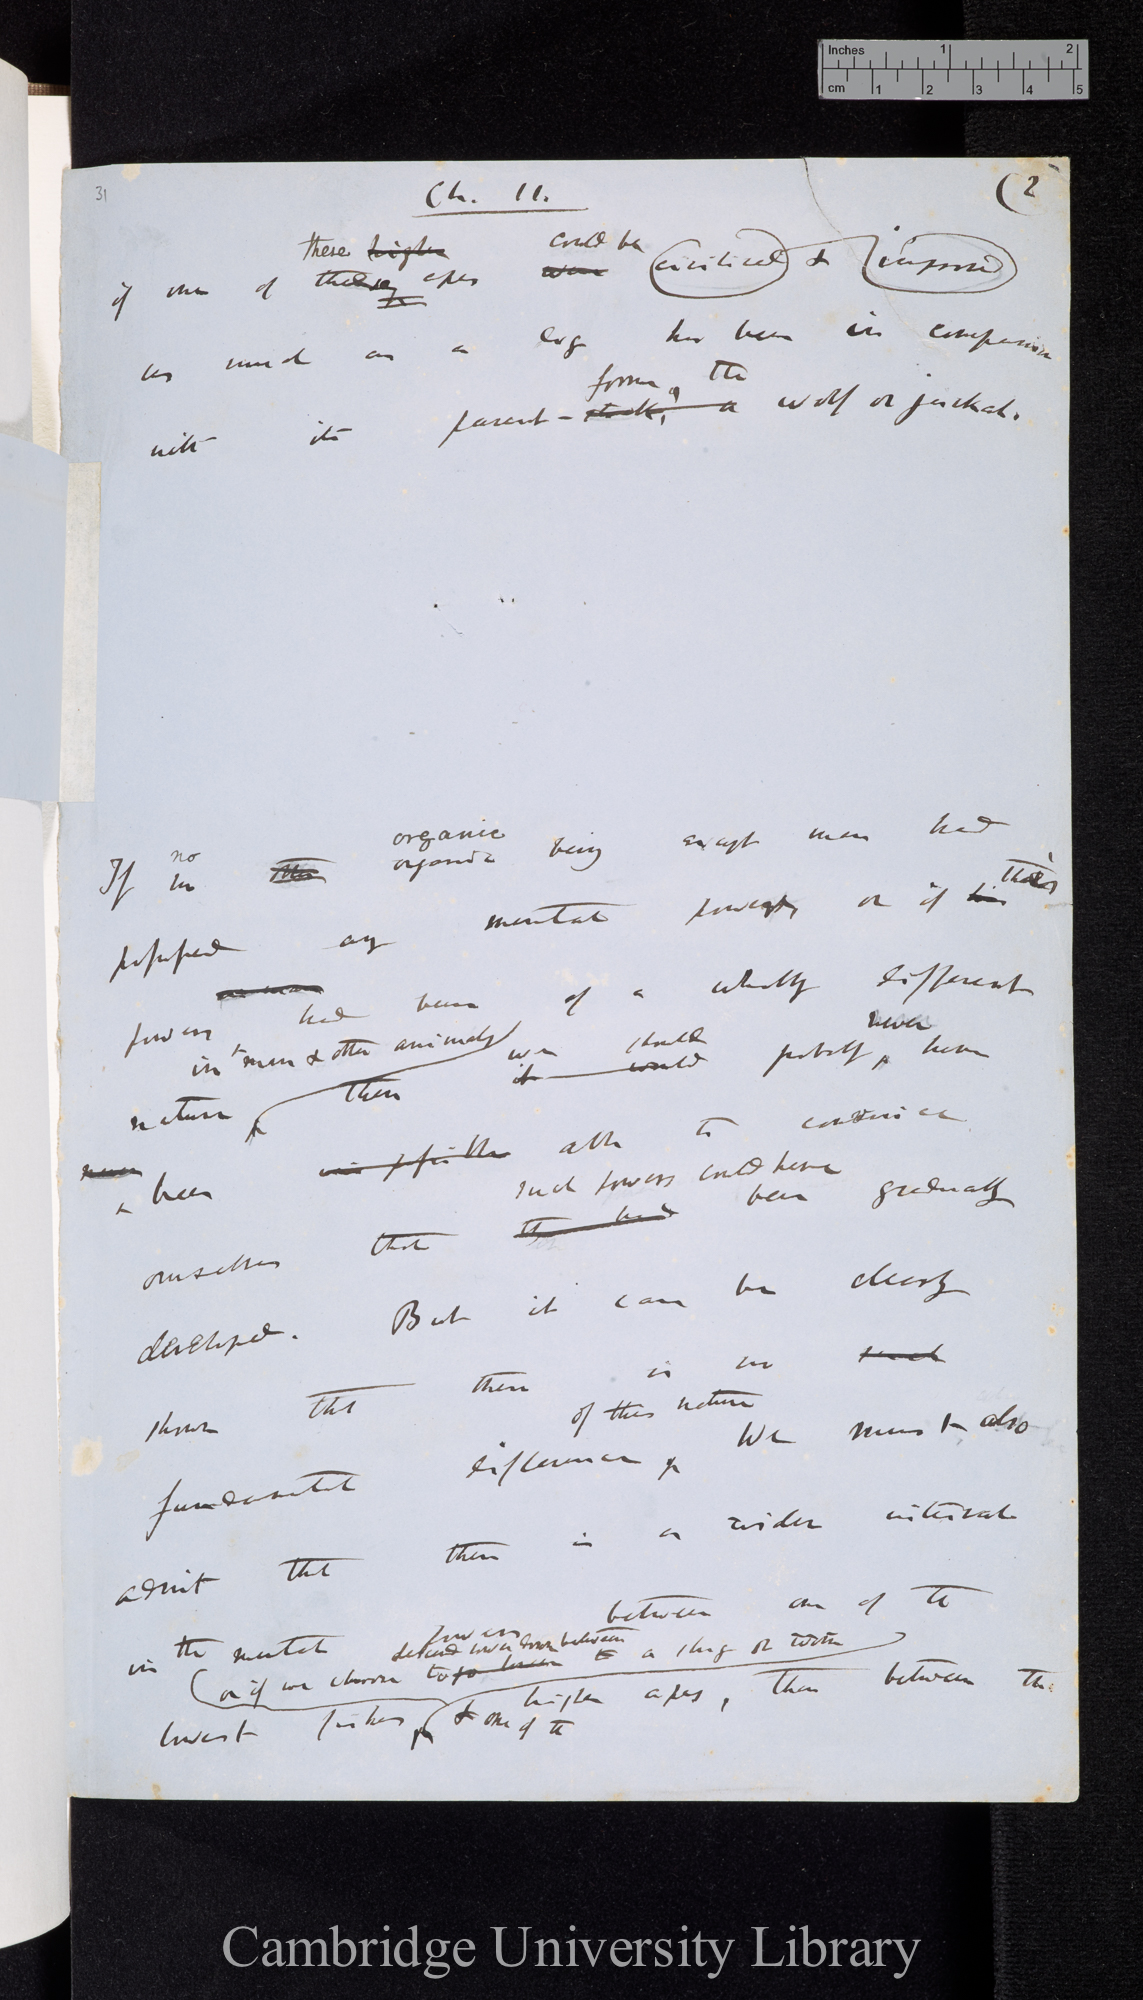 Inches 1 2
cm 1 2 3 4 5
31
Ch. II. (2
these higher could be
if one of these apes were civilised & improved
as much as a dog has been in comparison
form, the
with its parent-stock, a wolf or jackal.
no organic
If no organic being except man had
these
possessed any mental powers or if his
powers had been of a wholly different
in man & other animals we should never
nature then it would probably have
never been impossible able to convince
such powers could have
ourselves that been gradually
developed. But it can be clearly
shown that there is no such
of this nature
fundamental difference We must also
admit that there is a wider interval
in the mental powers between one of the
or if we choose to descend lower down between a slug or
lowest fishes, & one of the higher apes, than between the
Cambridge University Library